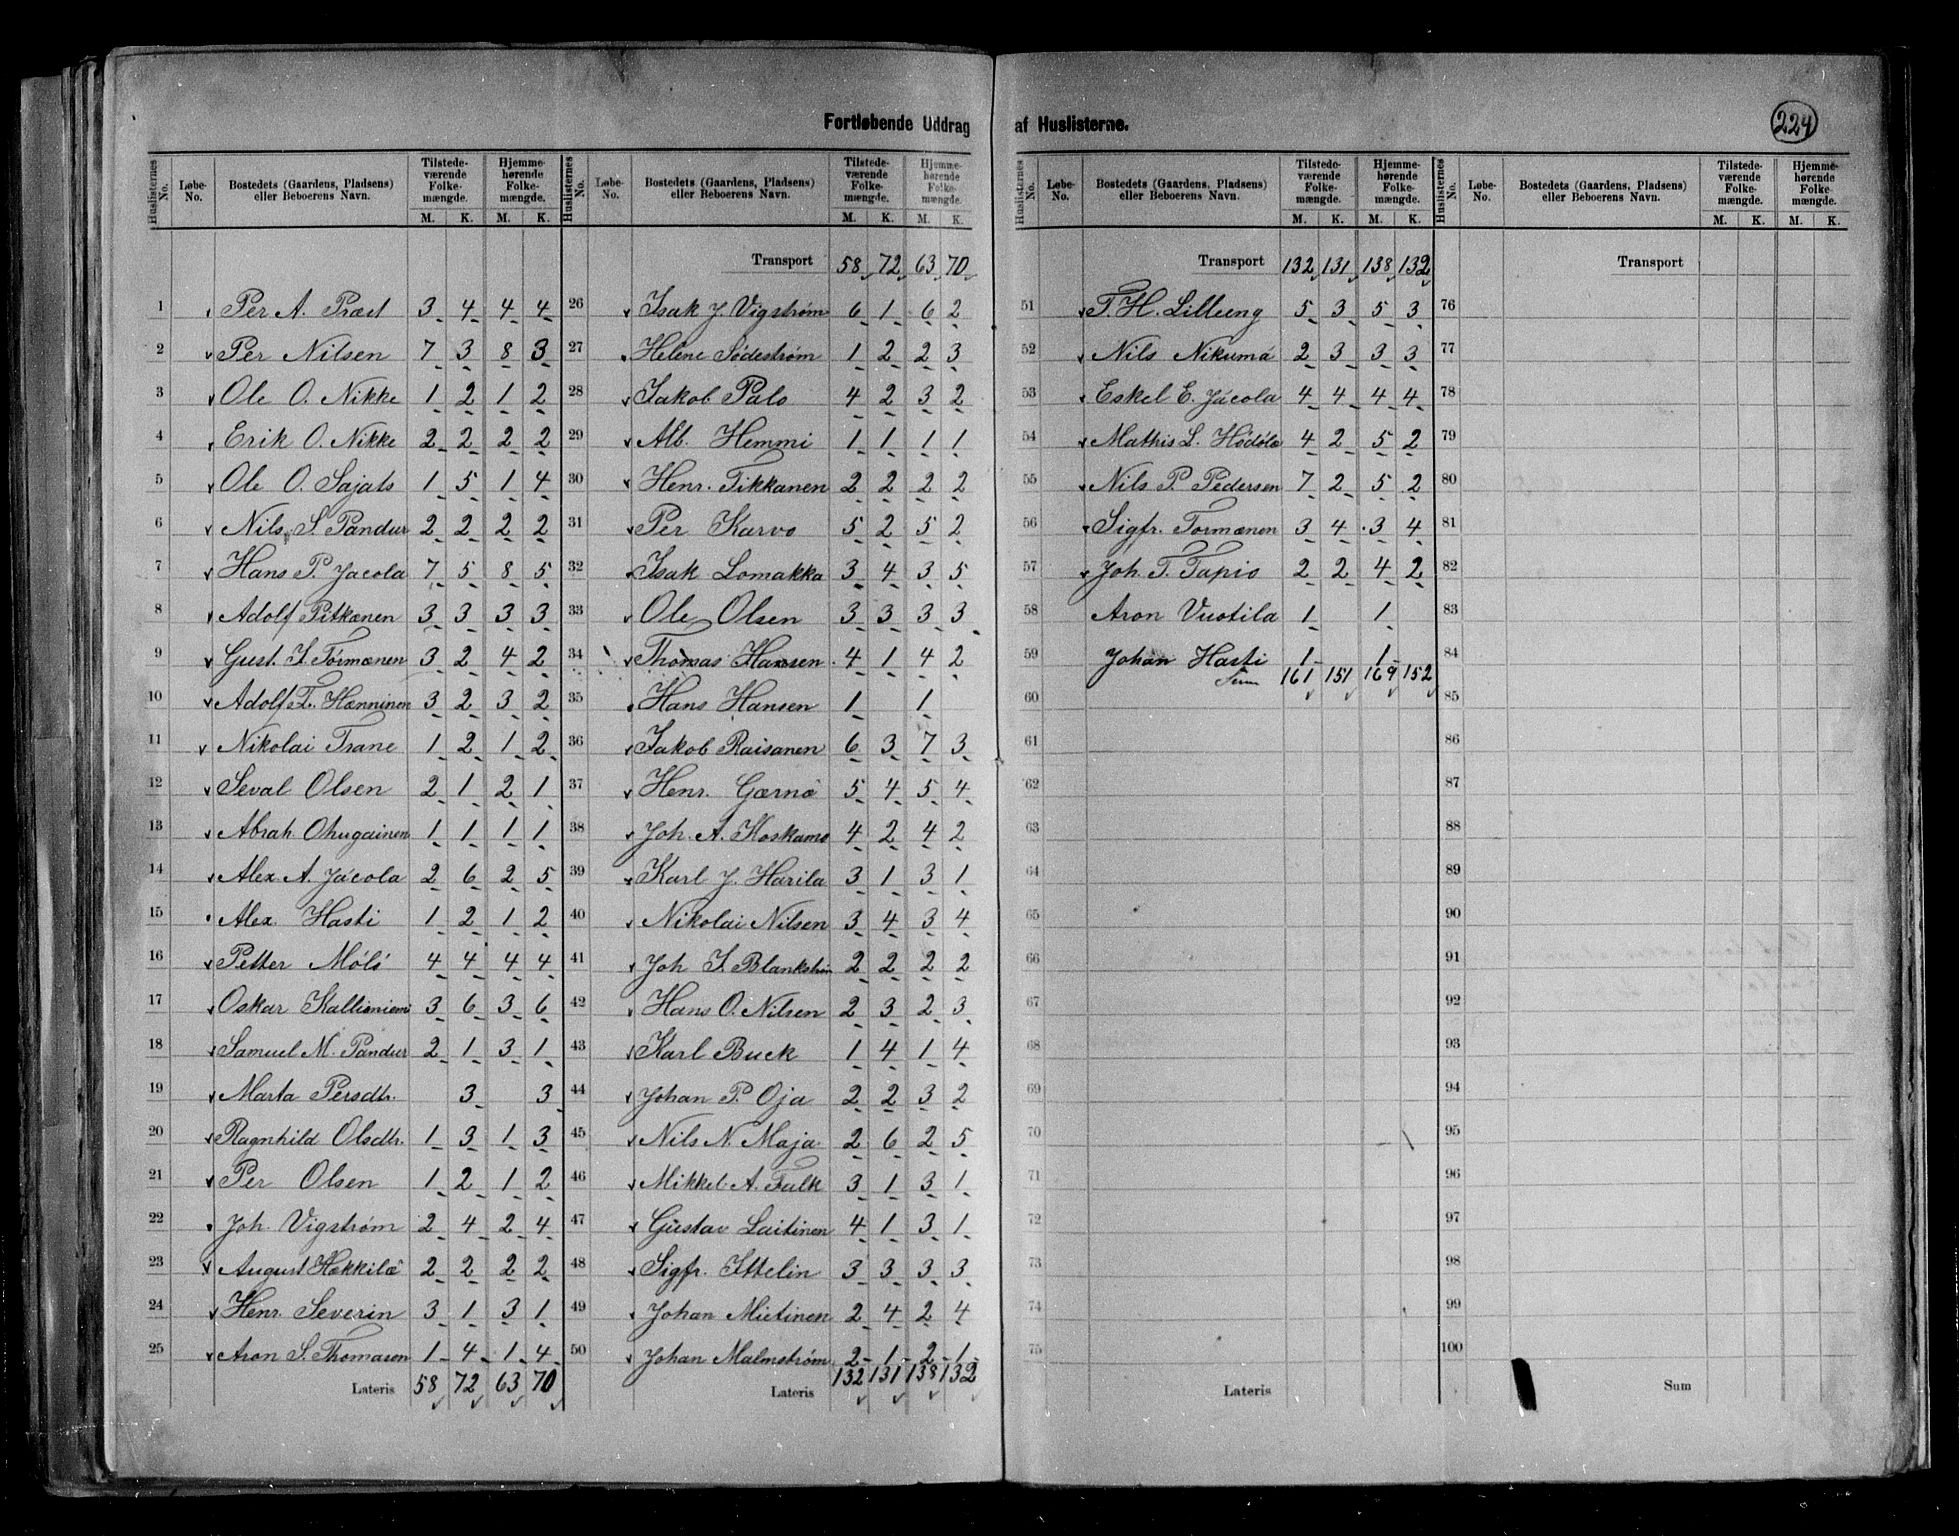 Fortløbende Uddrag af Huslisterne.
224
Huslisternes No. | Løbe-No. | Bostedets (Gaardens, Pladsens) eller Beboerens Navn. | Tilstedeværende Folkemængde. M. K. | Hjemmehørende Folkemængde. M. K.
1 Per A. Præst 3 4 4 4
2 Per Nilsen 7 3 8 3
3 Ole O. Nikke 1 2 1 2
4 Erik O. Nikke 2 2 2 2
5 Ole O. Sajats 1 5 1 4
6 Nils S. Pandur 2 2 2 2
7 Hans P. Jacola 7 5 8 5
8 Adolf Pitkænen 3 3 3 3
9 Gust. I. Tórmænen 3 2 4 2
10 Adolf T. Hænninen 3 2 3 2
11 Nikolai Trane 1 2 1 2
12 Seval Olsen 2 1 2 1
13 Abrah. Ohugainen 1 1 1 1
14 Alex. A. Jácola 2 6 2 5
15 Alex Hasti 1 2 1 2
16 Petter Móló 4 4 4 4
17 Oskar Kallioniemi 3 6 3 6
18 Samuel M. Pandur 2 1 3 1
19 Marta Persdtr. 3 3
20 Ragnhild Olsdtr. 1 3 1 3
21 Per Olsen 1 2 1 2
22 Joh. Vigstrøm 2 4 2 4
23 August Hækkilæ 2 2 2 2
24 Henr. Severin 3 1 3 1
25 Aron S. Thomasen 1 4 1 4
Lateris 58 72 63 70
Huslisternes No. | Løbe-No. | Bostedets (Gaardens, Pladsens) eller Beboerens Navn. | Tilstedeværende Folkemængde. M. K. | Hjemmehørende Folkemængde. M. K.
Transport 58 72 63 70
26 Isak J. Vigstrøm 6 1 6 2
27 Helene Södestrøm 1 2 2 3
28 Jakob Palo 4 2 3 2
29 Alb. Hemmi 1 1 1 1
30 Henr. Tikkanen 2 2 2 2
31 Per Karvo 5 2 5 2
32 Isak Lomakka 3 4 3 5
33 Ole Olsen 3 3 3 3
34 Thomas Hansen 4 1 4 2
35 Hans Hansen 1 1
36 Jakob Raisanen 6 3 7 3
37 Henr. Gærnö 5 4 5 4
38 Joh. A. Koskamo 4 2 4 2
39 Karl J. Harila 3 1 3 1
40 Nikolai Nilsen 3 4 3 4
41 Joh I. Blankstrøm 2 2 2 2
42 Hans O. Nilsen 2 3 2 3
43 Karl Buck 1 4 1 4
44 Johan P. Oja 2 2 3 2
45 Nils N. Maja 2 6 2 5
46 Mikkel A. Falk 3 1 3 1
47 Gustav Laitinen 4 1 3 1
48 Sigfr. Ittelin 3 3 3 3
49 Johan Mietinen 2 4 2 4
50 Johan Malmstrøm 2 1 2 1
Lateris 132 131 138 132
Huslisternes No. | Løbe-No. | Bostedets (Gaardens, Pladsens) eller Beboerens Navn. | Tilstedeværende Folkemængde. M. K. | Hjemmehørende Folkemængde. M. K.
Transport 132 131 138 132
51 T. H. Lilleeng 5 3 5 3
52 Nils Nikumá 2 3 3 3
53 Eskel E. Jácola 4 4 4 4
54 Mathis L. Hódóla 4 2 5 2
55 Nils P. Pedersen 7 2 5 2
56 Sigfr. Tormænen 3 4 3 4
57 Joh. T. Tapio 2 2 4 2
58 Aron Vuotila 1 1
59 Johan Hasti 1 1
60 Sum 161 151 169 152
61
62
63
64
65
66
67
68
69
70
71
72
73
74
75
Lateris
Huslisternes No. | Løbe-No. | Bostedets (Gaardens, Pladsens) eller Beboerens Navn. | Tilstedeværende Folkemængde. M. K. | Hjemmehørende Folkemængde. M. K.
Transport
76
77
78
79
80
81
82
83
84
85
86
87
88
89
90
91
92
93
94
95
96
97
98
99
100
Sum